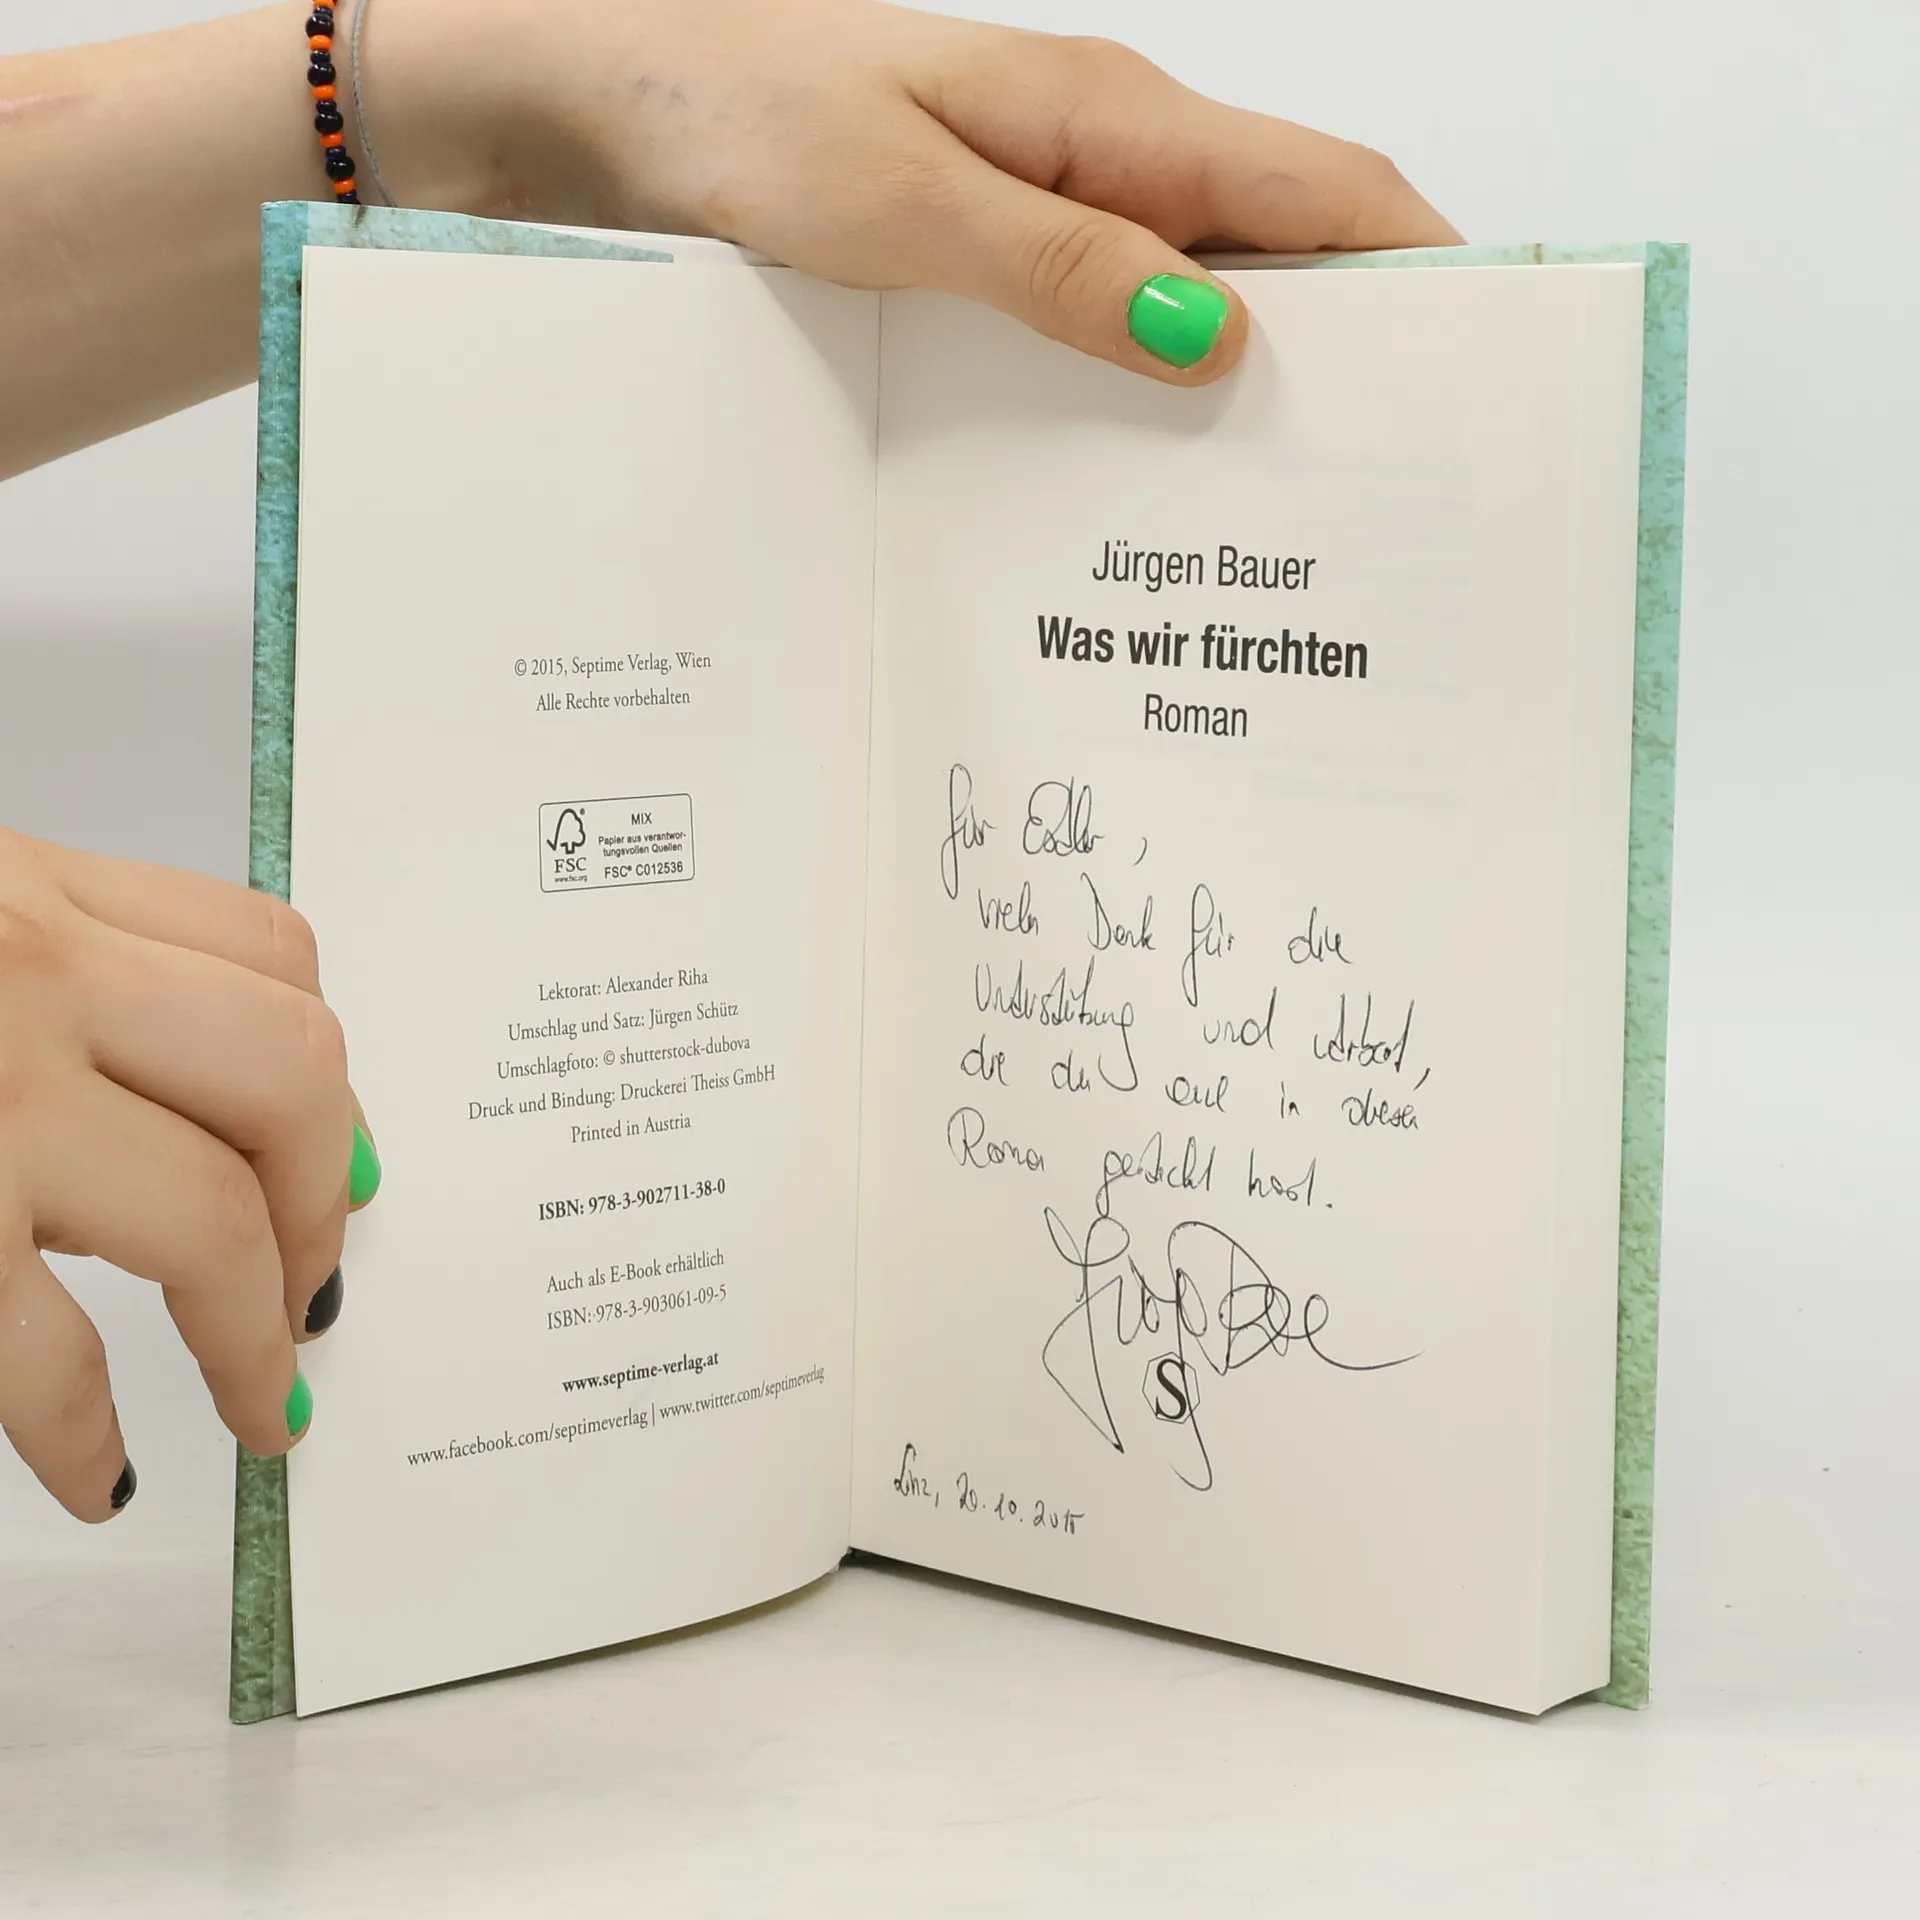 © 2015, Septime Verlag, Wien
Alle Rechte vorbehalten
FSC
www.fsc.org
MIX
Papier aus verantwor-
tungsvollen Quellen
FSC® C012536
Lektorat: Alexander Riha
Umschlag und Satz: Jürgen Schütz
Umschlagfoto: © shutterstock-dubova
Druck und Bindung: Druckerei Theiss GmbH
Printed in Austria
ISBN: 978-3-902711-38-0
Auch als E-Book erhältlich
ISBN: 978-3-903061-09-5
www.septime-verlag.at
www.facebook.com/septimeverlag | www.twitter.com/septimeverlag
Jürgen Bauer
Was wir fürchten
Roman
für
vielen Dank für die
Unterstützung und
die du auch in diesen
Roman gesteckt hast.
S
Linz, 20.10.2015